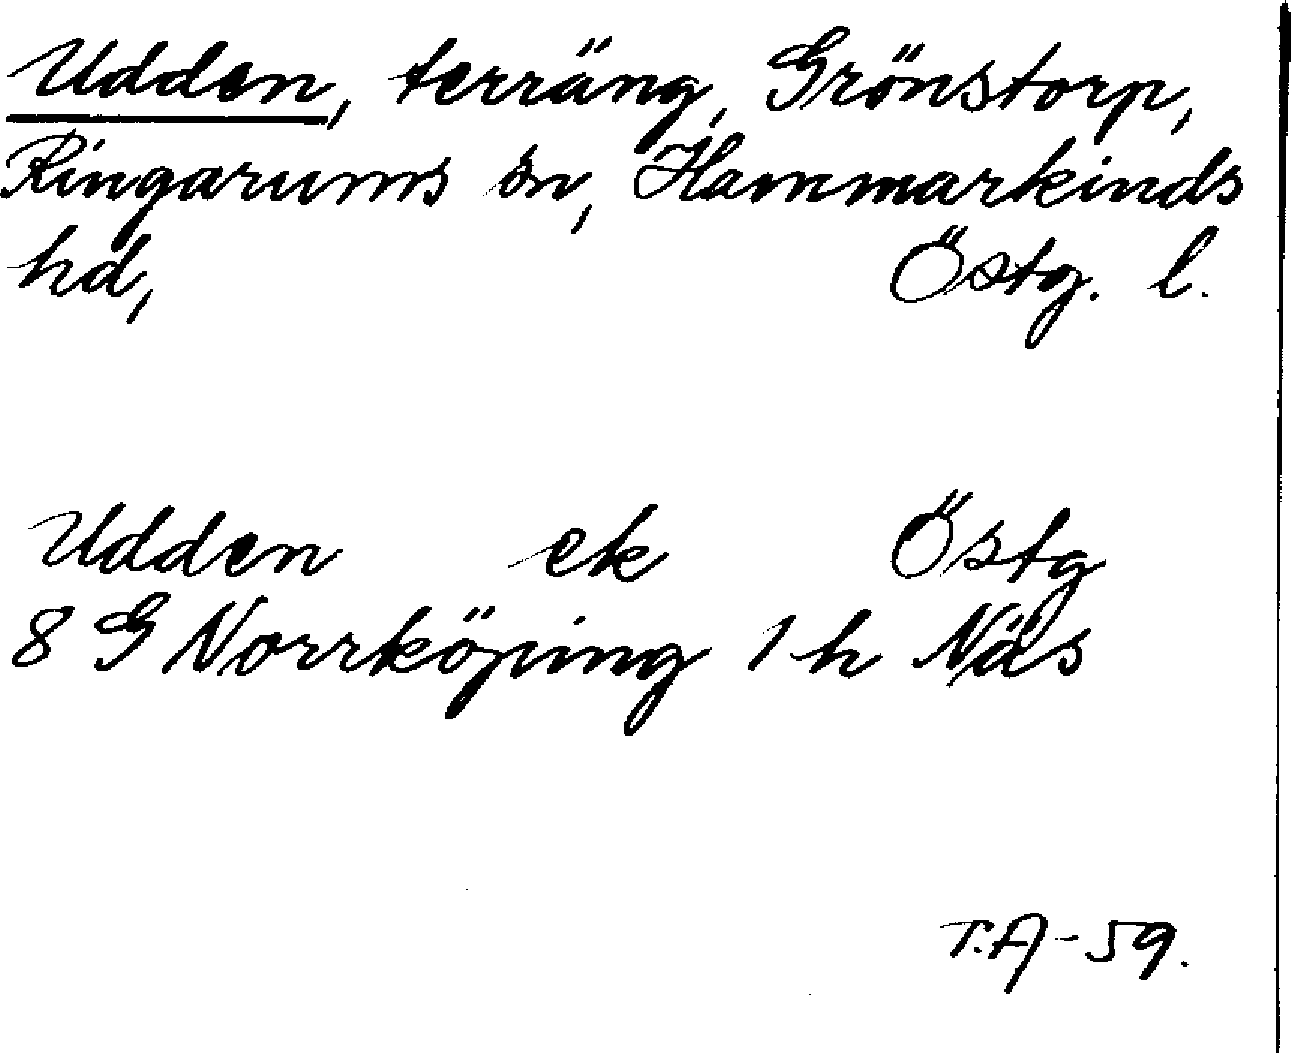 Udden, terräng, Grönstorp,
Ringarums sn, Hammarkinds
hd, Östg. l.
Udden ek Östg
8 G Norrköping 1 h Näs
T.A-59.